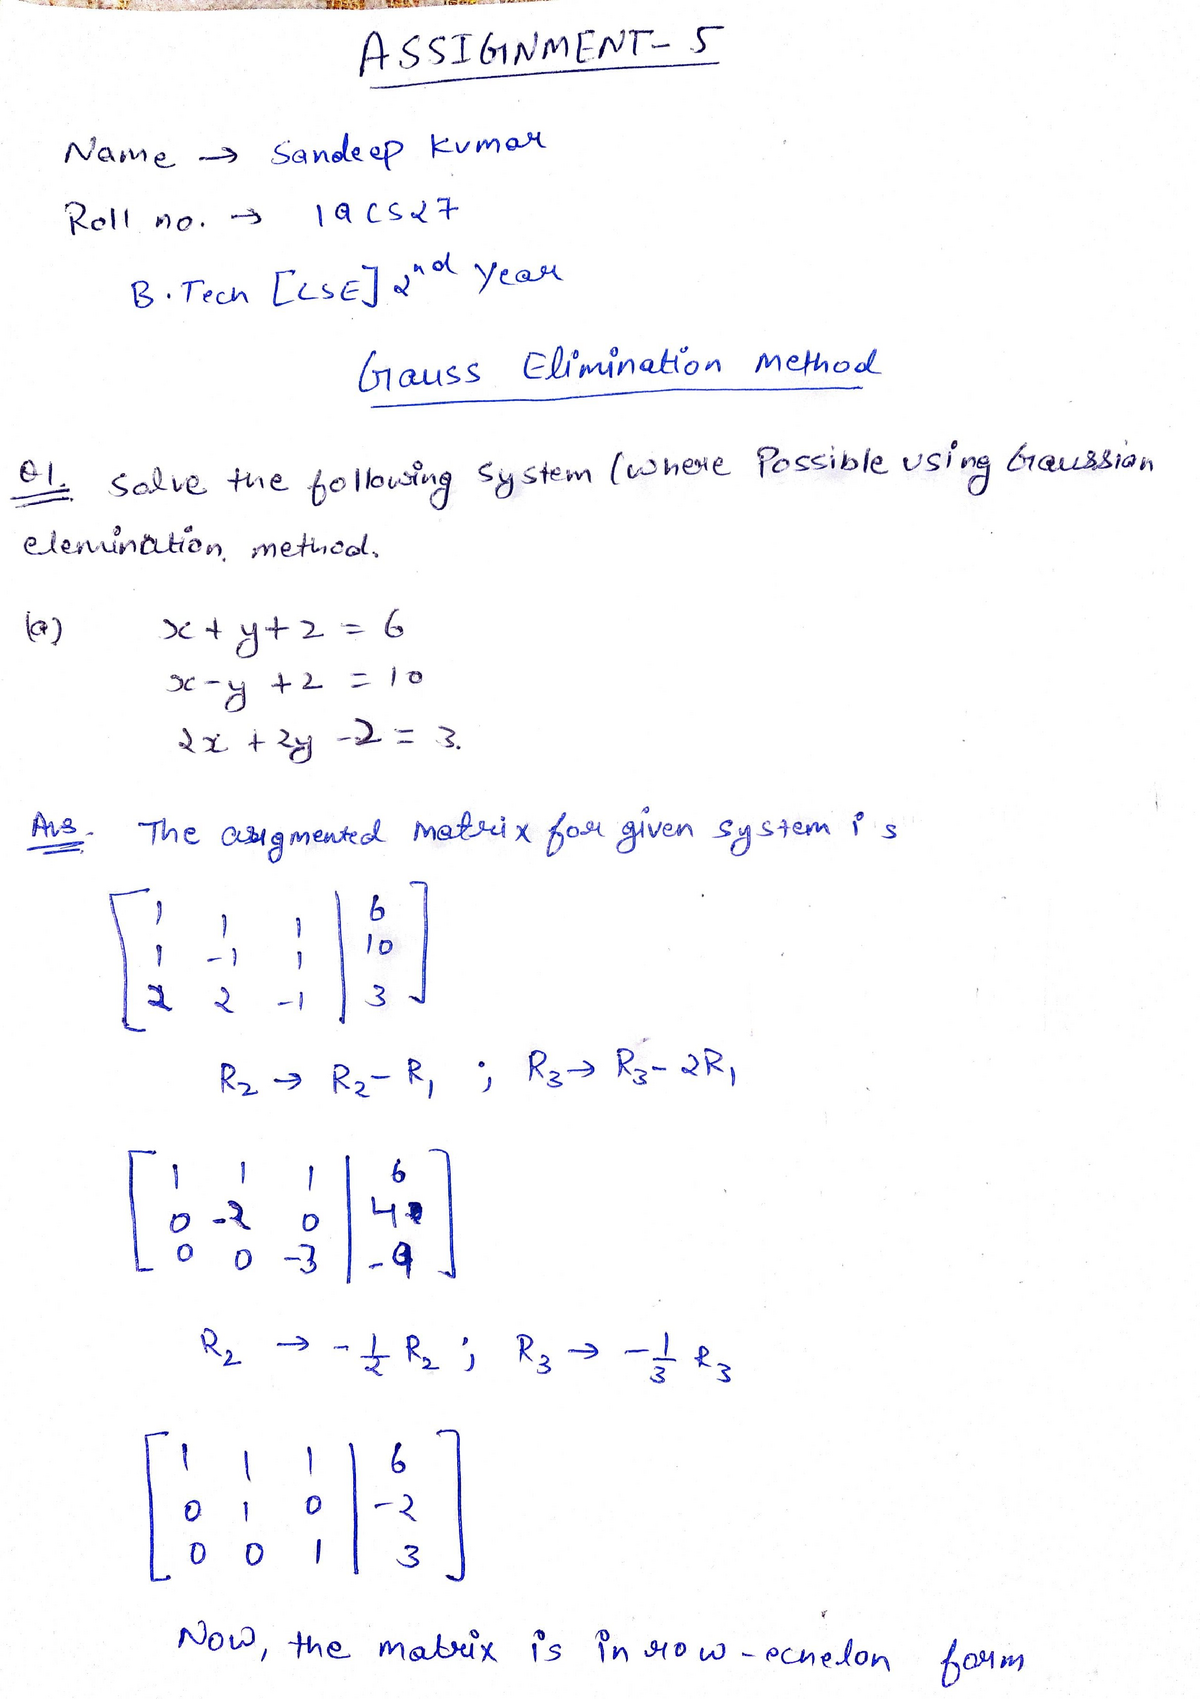 ASSIGNMENT- 5
Name → Sandeep Kumar
Roll no. → 19CS27
B.Tech [CSE] 2nd Year
Gauss Elimination Method
Q1. Solve the following system (where Possible using Gaussian
elemination method.
(a) x + y + z = 6
x - y + z = 10
2x + 2y - z = 3.
Ans. The augmented matrix for given system is
[ 1 1 1 | 6 ]
[ 1 -1 1 | 10 ]
[ 2 2 -1 | 3 ]
R2 → R2 - R1 ; R3 → R3 - 2R1
[ 1 1 1 | 6 ]
[ 0 -2 0 | 4 ]
[ 0 0 -3 | -9 ]
R2 → -1/2 R2 ; R3 → -1/3 R3
[ 1 1 1 | 6 ]
[ 0 1 0 | -2 ]
[ 0 0 1 | 3 ]
Now, the matrix is in row-echelon form